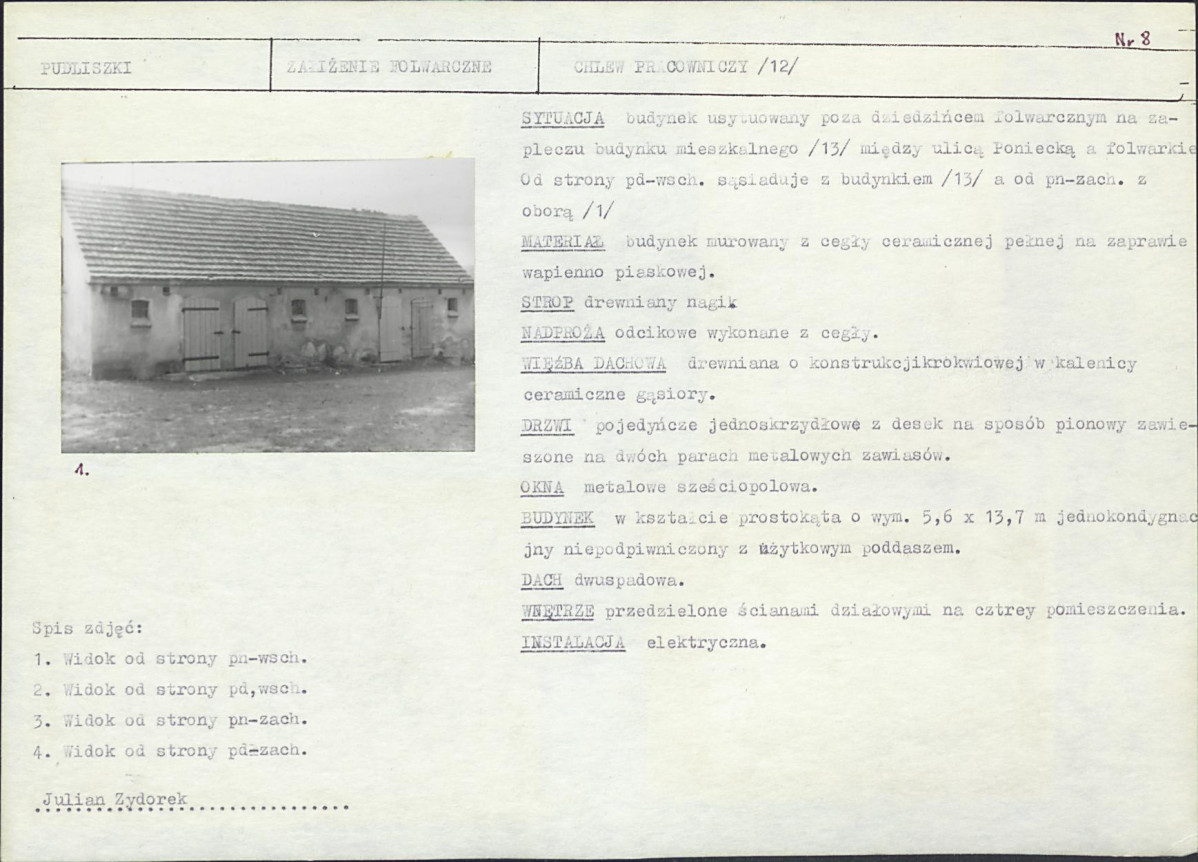 Nr 8
PUDLISZKI ZAŁIŻENIE FOLWARCZNE CHLEW PRACOWNICZY /12/
SYTUACJA budynek usytuowany poza dziedzińcem folwarcznym na za-
pleczu budynku mieszkalnego /13/ między ulicą Poniecką a folwarkie
Od strony pd-wsch. sąsiaduje z budynkiem /13/ a od pn-zach. z
oborą /1/
MATERIAŁ budynek murowany z cegły ceramicznej pełnej na zaprawie
wapienno piaskowej.
STROP drewniany nagik
NADPROŻA odcikowe wykonane z cegły.
WIĘŹBA DACHOWA drewniana o konstrukcjikrokwiowej w kalenicy
ceramiczne gąsiory.
DRZWI pojedyńcze jednoskrzydłowe z desek na sposób pionowy zawie-
szone na dwóch parach metalowych zawiasów.
OKNA metalowe sześciopolowa.
BUDYNEK w kształcie prostokąta o wym. 5,6 x 13,7 m jednokondygnac
jny niepodpiwniczony z użytkowym poddaszem.
DACH dwuspadowa.
WNĘTRZE przedzielone ścianami działowymi na cztrey pomieszczenia.
INSTALACJA elektryczna.
1.
Spis zdjęć:
1. Widok od strony pn-wsch.
2. Widok od strony pd,wsch.
3. Widok od strony pn-zach.
4. Widok od strony pd-zach.
Julian Zydorek